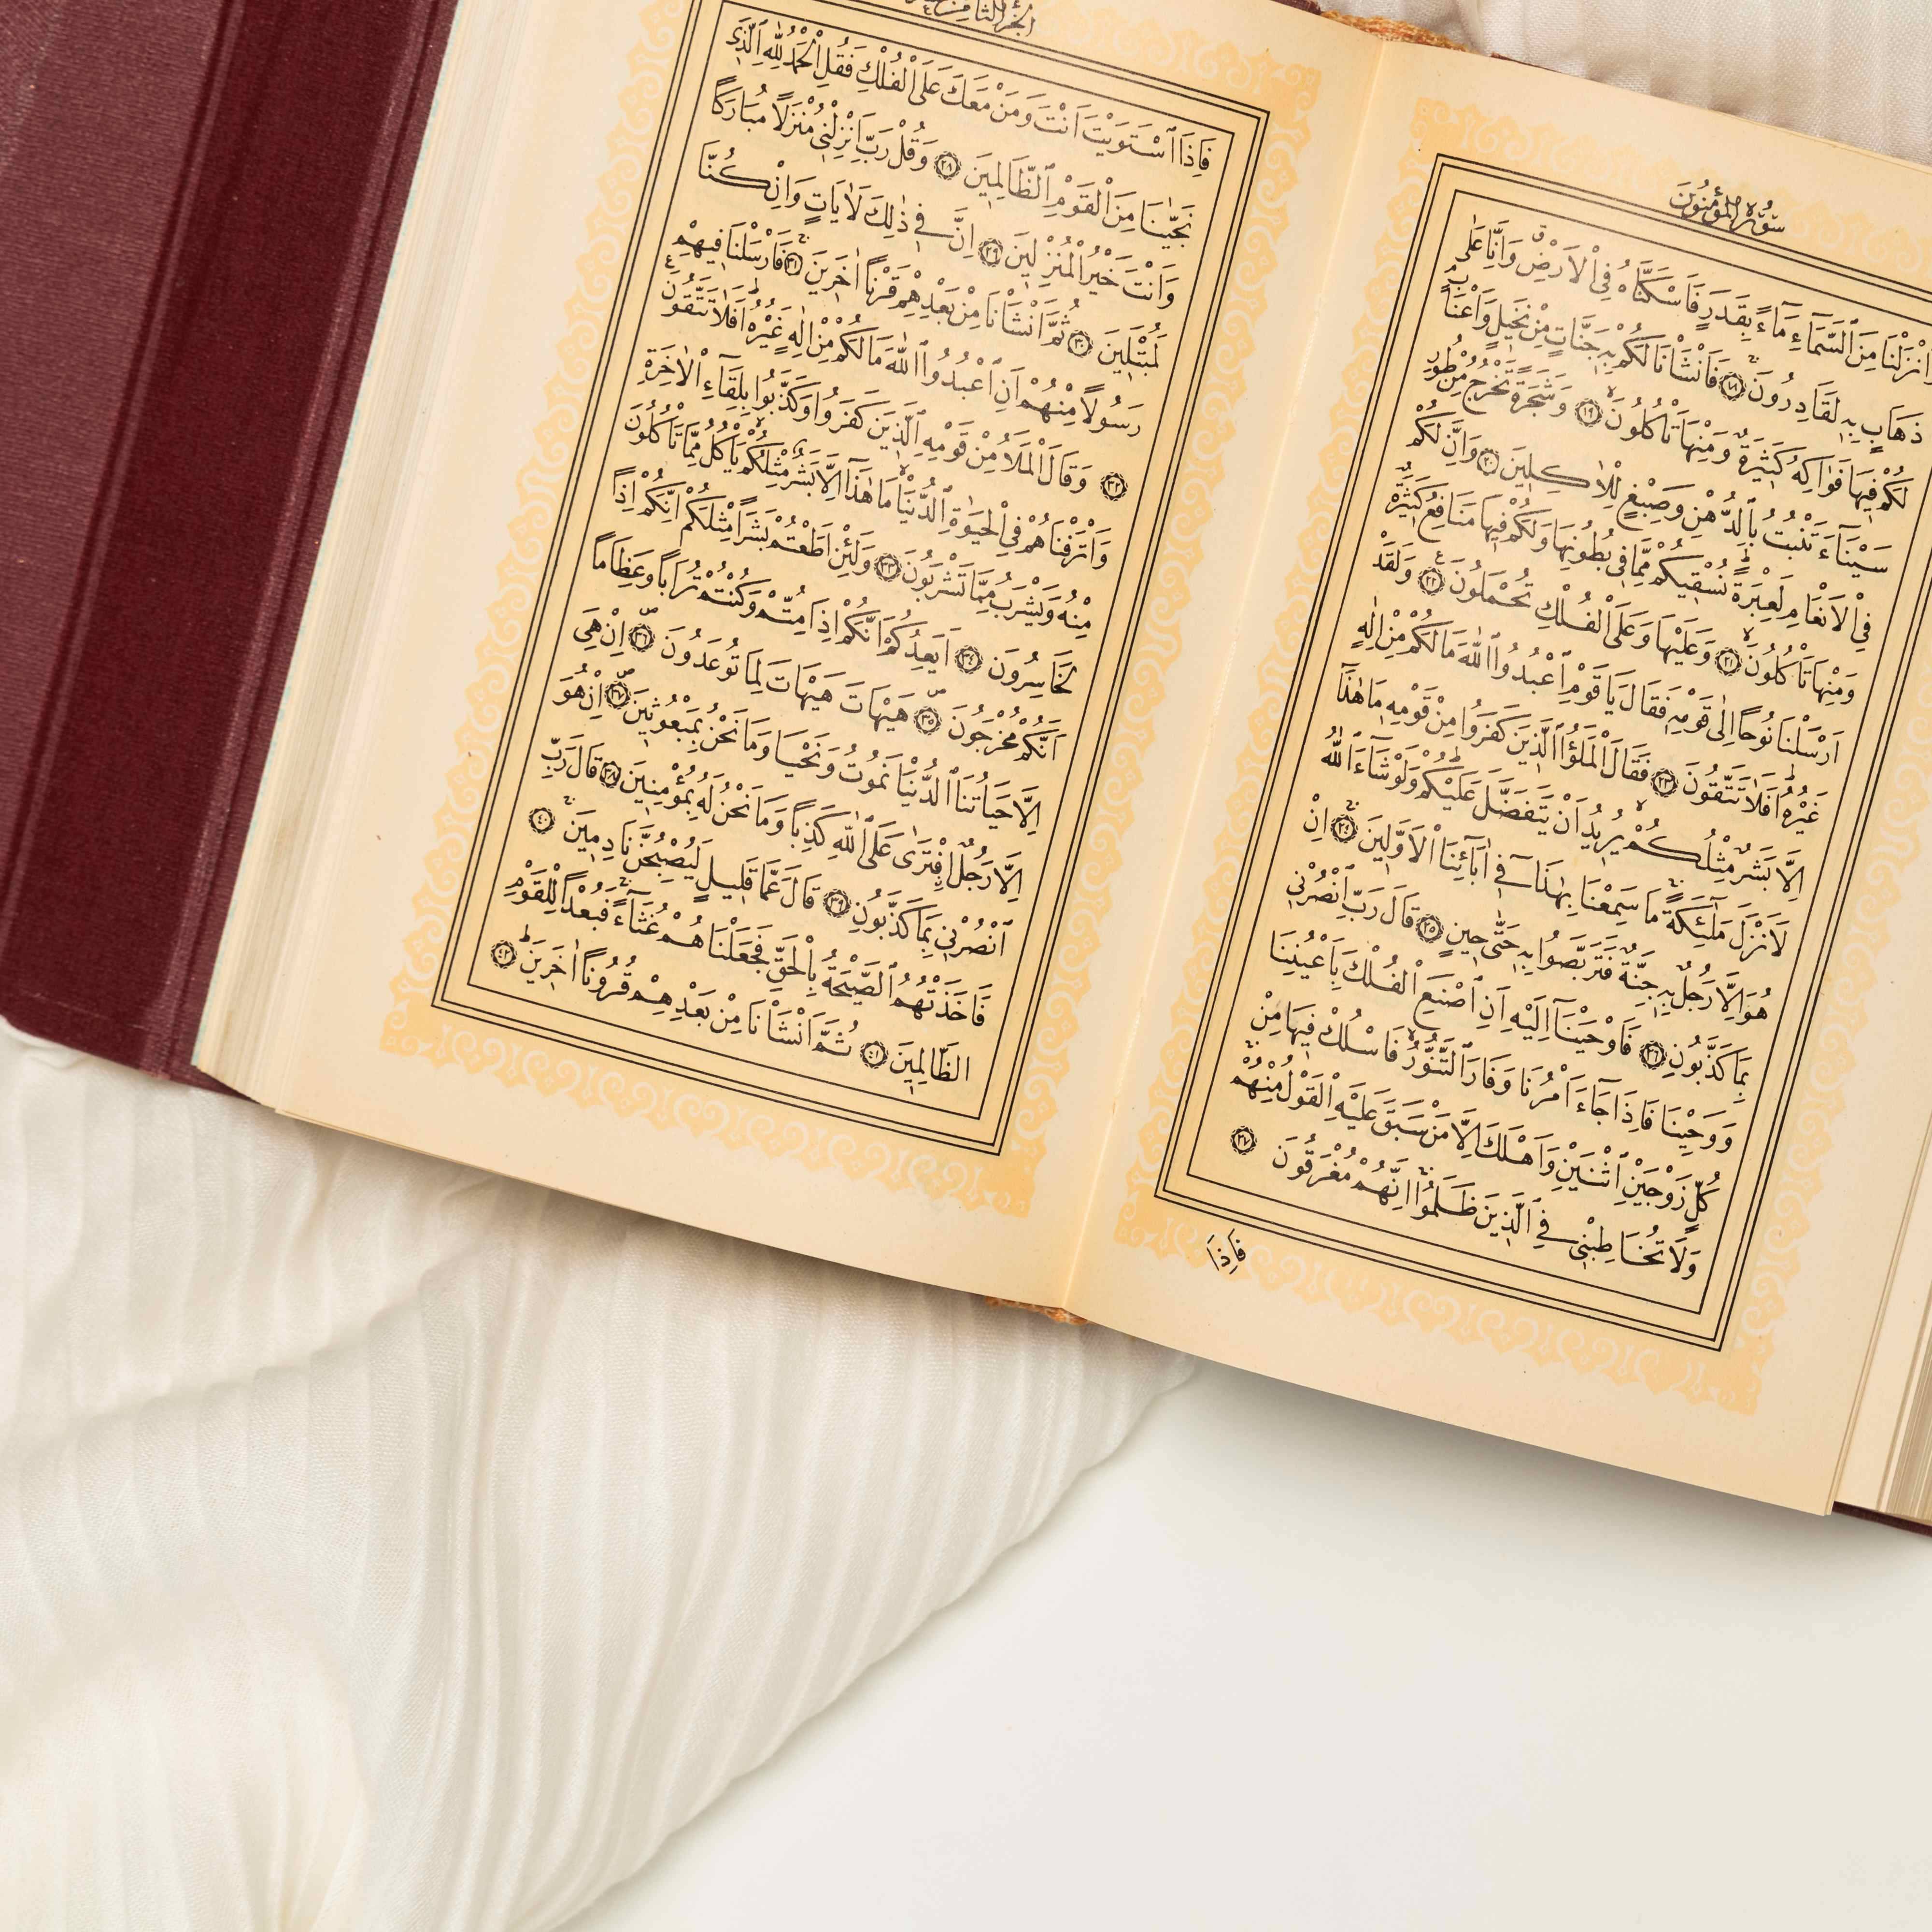 سُورَةُ الْمُؤْمِنُونَ
وَاَنْزَلْنَا مِنَ السَّمَٓاءِ مَٓاءً بِقَدَرٍ فَاَسْكَنَّاهُ فِي الْاَرْضِۗ وَاِنَّا عَلٰى
ذَهَابٍ بِهِ لَقَادِرُونَۚ ﴿١٨﴾ فَاَنْشَأْنَا لَكُمْ بِهِ جَنَّاتٍ مِنْ نَخِيلٍ وَاَعْنَابٍۢ
لَكُمْ فِيهَا فَوَاكِهُ كَثِيرَةٌ وَمِنْهَا تَأْكُلُونَۙ ﴿١٩﴾ وَشَجَرَةً تَخْرُجُ مِنْ طُورِ
سَيْنَٓاءَ تَنْبُتُ بِالدُّهْنِ وَصِبْغٍ لِلْاٰكِلِينَ ﴿٢٠﴾ وَاِنَّ لَكُمْ
فِي الْاَنْعَامِ لَعِبْرَةًۜ نُسْقِيكُمْ مِمَّا فِي بُطُونِهَا وَلَكُمْ فِيهَا مَنَافِعُ كَثِيرَةٌ
وَمِنْهَا تَأْكُلُونَۙ ﴿٢١﴾ وَعَلَيْهَا وَعَلَى الْفُلْكِ تُحْمَلُونَ ﴿٢٢﴾ وَلَقَدْ
اَرْسَلْنَا نُوحاً اِلٰى قَوْمِهِ فَقَالَ يَا قَوْمِ اعْبُدُوا اللّٰهَ مَا لَكُمْ مِنْ اِلٰهٍ
غَيْرُهُۜ اَفَلَا تَتَّقُونَ ﴿٢٣﴾ فَقَالَ الْمَلَؤُا الَّذِينَ كَفَرُوا مِنْ قَوْمِهِ مَا هٰذَٓا
اِلَّا بَشَرٌ مِثْلُكُمْۙ يُرِيدُ اَنْ يَتَفَضَّلَ عَلَيْكُمْۜ وَلَوْ شَٓاءَ اللّٰهُ
لَاَنْزَلَ مَلٰٓئِكَةًۚ مَا سَمِعْنَا بِهٰذَا فِٓي اٰبَٓائِنَا الْاَوَّلِينَۚ ﴿٢٤﴾ اِنْ
هُوَ اِلَّا رَجُلٌ بِهِ جِنَّةٌ فَتَرَبَّصُوا بِهِ حَتّٰى حِينٍ ﴿٢٥﴾ قَالَ رَبِّ انْصُرْنِي
بِمَا كَذَّبُونِ ﴿٢٦﴾ فَاَوْحَيْنَٓا اِلَيْهِ اَنِ اصْنَعِ الْفُلْكَ بِاَعْيُنِنَا
وَوَحْيِنَا فَاِذَا جَٓاءَ اَمْرُنَا وَفَارَ التَّنُّورُۙ فَاسْلُكْ فِيهَا مِنْ
كُلٍّ زَوْجَيْنِ اثْنَيْنِ وَاَهْلَكَ اِلَّا مَنْ سَبَقَ عَلَيْهِ الْقَوْلُ مِنْهُمْۚ
وَلَا تُخَاطِبْنِي فِي الَّذِينَ ظَلَمُواۚ اِنَّهُمْ مُغْرَقُونَ ﴿٢٧﴾
فَاِذَا
فَاِذَا اسْتَوَيْتَ اَنْتَ وَمَنْ مَعَكَ عَلَى الْفُلْكِ فَقُلِ الْحَمْدُ لِلّٰهِ الَّذِي
نَجّٰينَا مِنَ الْقَوْمِ الظَّالِمِينَ ﴿٢٨﴾ وَقُلْ رَبِّ اَنْزِلْنِي مُنْزَلاً مُبَارَكاً
وَاَنْتَ خَيْرُ الْمُنْزِلِينَ ﴿٢٩﴾ اِنَّ فِي ذٰلِكَ لَاٰيَاتٍ وَاِنْ كُنَّا
لَمُبْتَلِينَ ﴿٣٠﴾ ثُمَّ اَنْشَأْنَا مِنْ بَعْدِهِمْ قَرْناً اٰخَرِينَۚ ﴿٣١﴾ فَاَرْسَلْنَا فِيهِمْ
رَسُولاً مِنْهُمْ اَنِ اعْبُدُوا اللّٰهَ مَا لَكُمْ مِنْ اِلٰهٍ غَيْرُهُۜ اَفَلَا تَتَّقُونَ
﴿٣٢﴾ وَقَالَ الْمَلَأُ مِنْ قَوْمِهِ الَّذِينَ كَفَرُوا وَكَذَّبُوا بِلِقَٓاءِ الْاٰخِرَةِ
وَاَتْرَفْنَاهُمْ فِي الْحَيٰوةِ الدُّنْيَاۙ مَا هٰذَٓا اِلَّا بَشَرٌ مِثْلُكُمْۙ يَأْكُلُ مِمَّا تَأْكُلُونَ
مِنْهُ وَيَشْرَبُ مِمَّا تَشْرَبُونَ ﴿٣٣﴾ وَلَئِنْ اَطَعْتُمْ بَشَراً مِثْلَكُمْ اِنَّكُمْ اِذاً
لَخَاسِرُونَ ﴿٣٤﴾ اَيَعِدُكُمْ اَنَّكُمْ اِذَا مِتُّمْ وَكُنْتُمْ تُرَاباً وَعِظَاماً
اَنَّكُمْ مُخْرَجُونَ ﴿٣٥﴾ هَيْهَاتَ هَيْهَاتَ لِمَا تُوعَدُونَ ﴿٣٦﴾ اِنْ هِيَ
اِلَّا حَيَاتُنَا الدُّنْيَا نَمُوتُ وَنَحْيَا وَمَا نَحْنُ بِمَبْعُوثِينَ ﴿٣٧﴾ اِنْ هُوَ
اِلَّا رَجُلٌۨ افْتَرٰى عَلَى اللّٰهِ كَذِباً وَمَا نَحْنُ لَهُ بِمُؤْمِنِينَ ﴿٣٨﴾ قَالَ رَبِّ
انْصُرْنِي بِمَا كَذَّبُونِ ﴿٣٩﴾ قَالَ عَمَّا قَلِيلٍ لَيُصْبِحُنَّ نَادِمِينَۚ ﴿٤٠﴾
فَاَخَذَتْهُمُ الصَّيْحَةُ بِالْحَقِّ فَجَعَلْنَاهُمْ غُثَٓاءًۚ فَبُعْداً لِلْقَوْمِ
الظَّالِمِينَ ﴿٤١﴾ ثُمَّ اَنْشَأْنَا مِنْ بَعْدِهِمْ قُرُوناً اٰخَرِينَۜ ﴿٤٢﴾